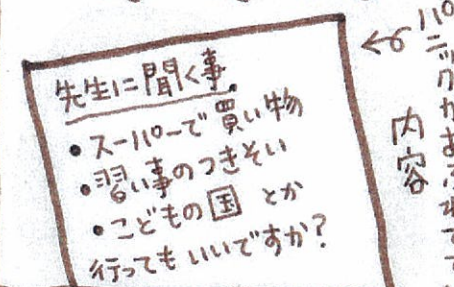 先生に聞く事
・スーパーで買い物
・習い事のつきそい
・こどもの国 とか
行ってもいいですか?
内容